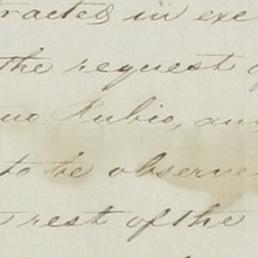 tracted in exe
the request of
uo Rubio, and
to be observe
rest of the